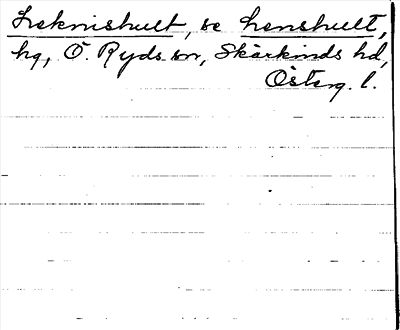 Leknishult, se Lenshult,
hg, Ö. Ryds sn, Skärkinds hd,
Österg. l.